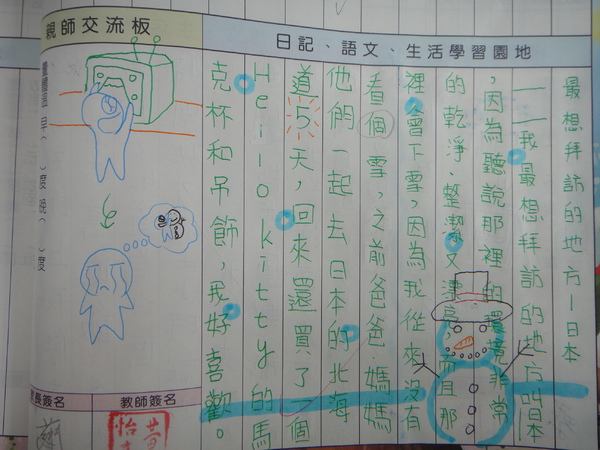 親師交流板
日記、語文、生活學習園地
最想拜訪的地方—日本
我最想拜訪的地方叫日本
,因為聽說那裡的環境非常
的乾淨、整潔又漂亮,而且那
裡會下雪,因為我從來沒有
看個雪,之前爸爸、媽媽
他們一起去日本的北海
道5天,回來還買了一個
Hello kitty的馬
克杯和吊飾,我好喜歡。
早( )度 晚( )度
長簽名
教師簽名